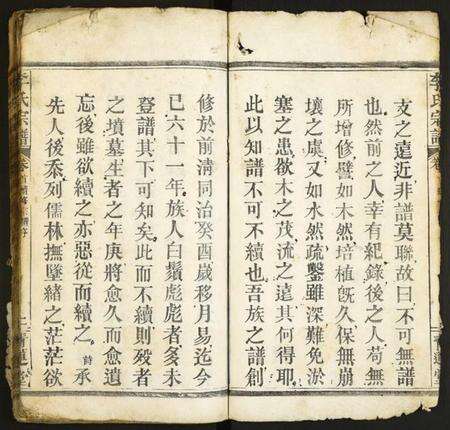 李氏宗譜
卷
支之遠近非譜莫聯故曰不可無譜
也然前之人幸有紀錄後之人苟無
所增修譬如木然培植旣久保無崩
壞之虞又如水然疏鑿雖深難免淤
塞之患欲木之茂流之遠其何得耶
此以知譜不可不續也吾族之譜創
修於前清同治癸酉歲移月易迄今
已六十一年族人白鬚彪彪者多未
登譜其下可知矣此而不續則歿者
之墳墓生者之年庚將愈久而愈遺
忘後雖欲續之亦惡從而續之 時 承
先人後忝列儒林撫墜緒之茫茫欲
李氏宗譜
卷
堂